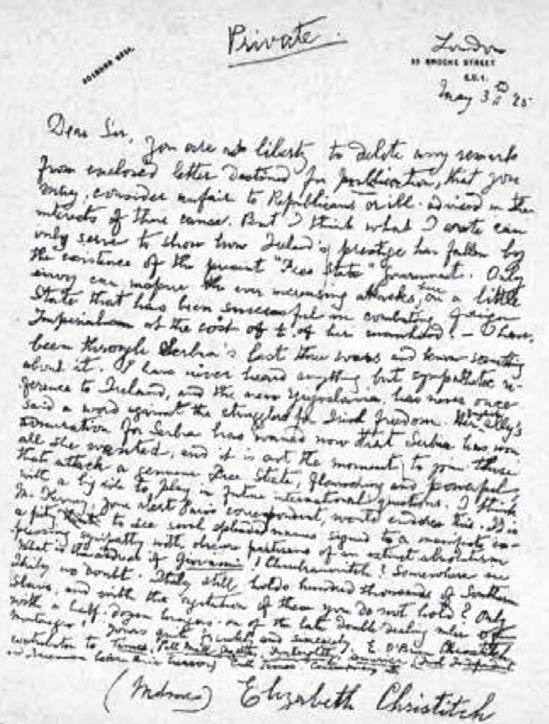 Private.
London
BROOKE STREET
E.C.1.
May 3rd '25
Dear Sir, You are at liberty to delete any remarks
from enclosed letter destined for publication, that you
may consider unfair to Republicans or ill-advised in the
interests of their cause. But I think what I wrote can
only serve to show how Ireland's prestige has fallen by
the existence of the present "Free State" Government. Only
envy can inspire the ever increasing attacks on a little
State that has been successful in combating foreign
Imperialism at the cost of ½ of her manhood! - I have
been through Serbia's last three wars and know something
about it. I have never heard anything but sympathetic re-
ference to Ireland, and the new Yugoslavia, has never once
said a word against the struggles for Irish freedom. Her ally's
admiration for Serbia has waned now that Serbia has won
all she wanted, and it is not the moment to join those
that attack a genuine Free State, flourishing and powerful,
with a big rôle to play in future international questions. I think
Mr. Kerney, your alert Paris correspondent, would endorse this. It is
a pity to see such splendid names signed to a manifesto ex-
pressing sympathy with obscure partisans of an extinct absolutism
What is the address of Giovanni Chubranovitch? Somewhere in
Italy no doubt. Italy still holds hundred thousands of Southern
Slavs, and with the of them you do not hold? Only
with a half-dozen hangers-on of the late double dealing ruler of
Montenegro! Yours quite frankly and sincerely, E. O'Brien Christitch
contributor to Times, Pall Mall Gazette, America, (Irish Independent
(Mdme) Elizabeth Christitch